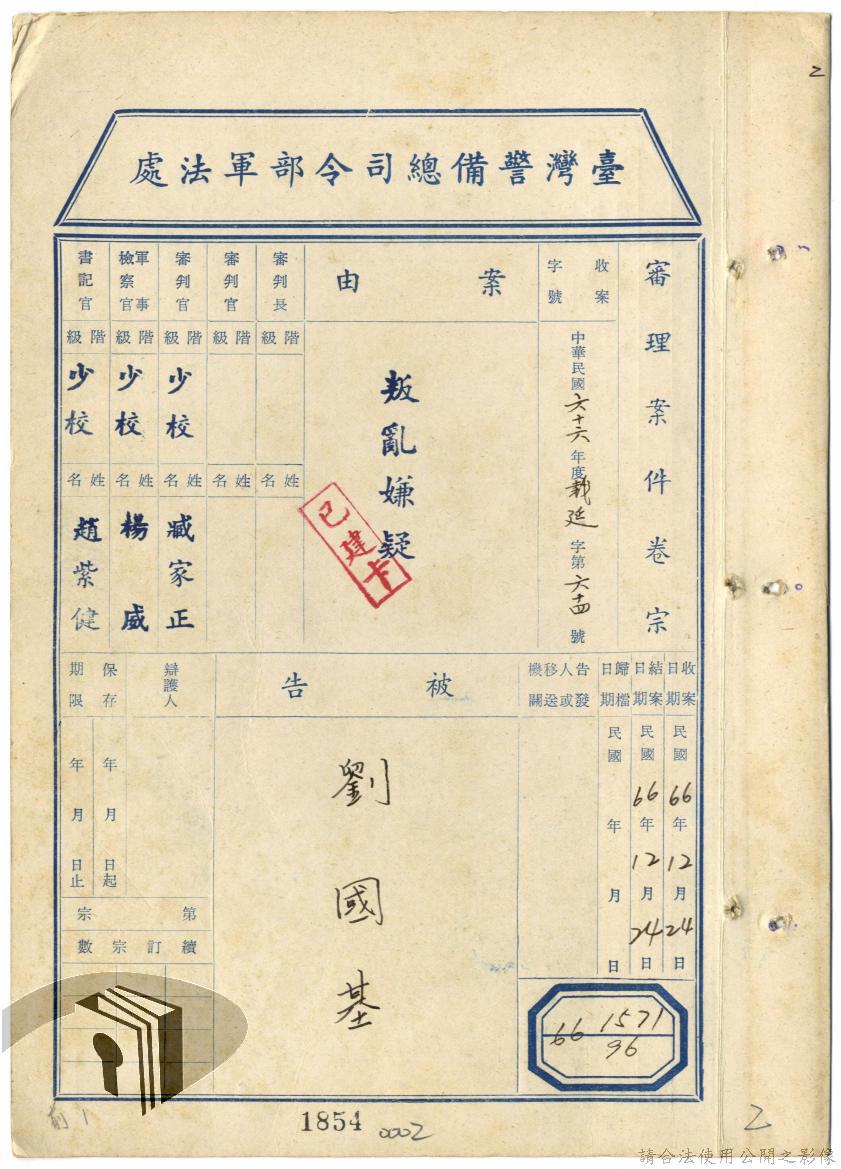 2
臺灣警備總司令部軍法處
審理案件卷宗
收案
字號
中華民國六十六年度裁延字第六十四號
案由
叛亂嫌疑
已建卡
審判長
階級
姓名
審判官
階級
姓名
審判官
階級
少校
姓名
臧家正
軍事檢察官
階級
少校
姓名
楊威
書記官
階級
少校
姓名
趙紫健
收案日期
民國66年12月24日
結案日期
民國66年12月24日
歸檔日期
民國 年 月 日
告發人或移送機關
被告
劉國基
辯護人
保存期限
年 月 日起
年 月 日止
第 宗
續訂宗數
66 1571
96
前1
1854
0002
2
請合法使用公開之影像